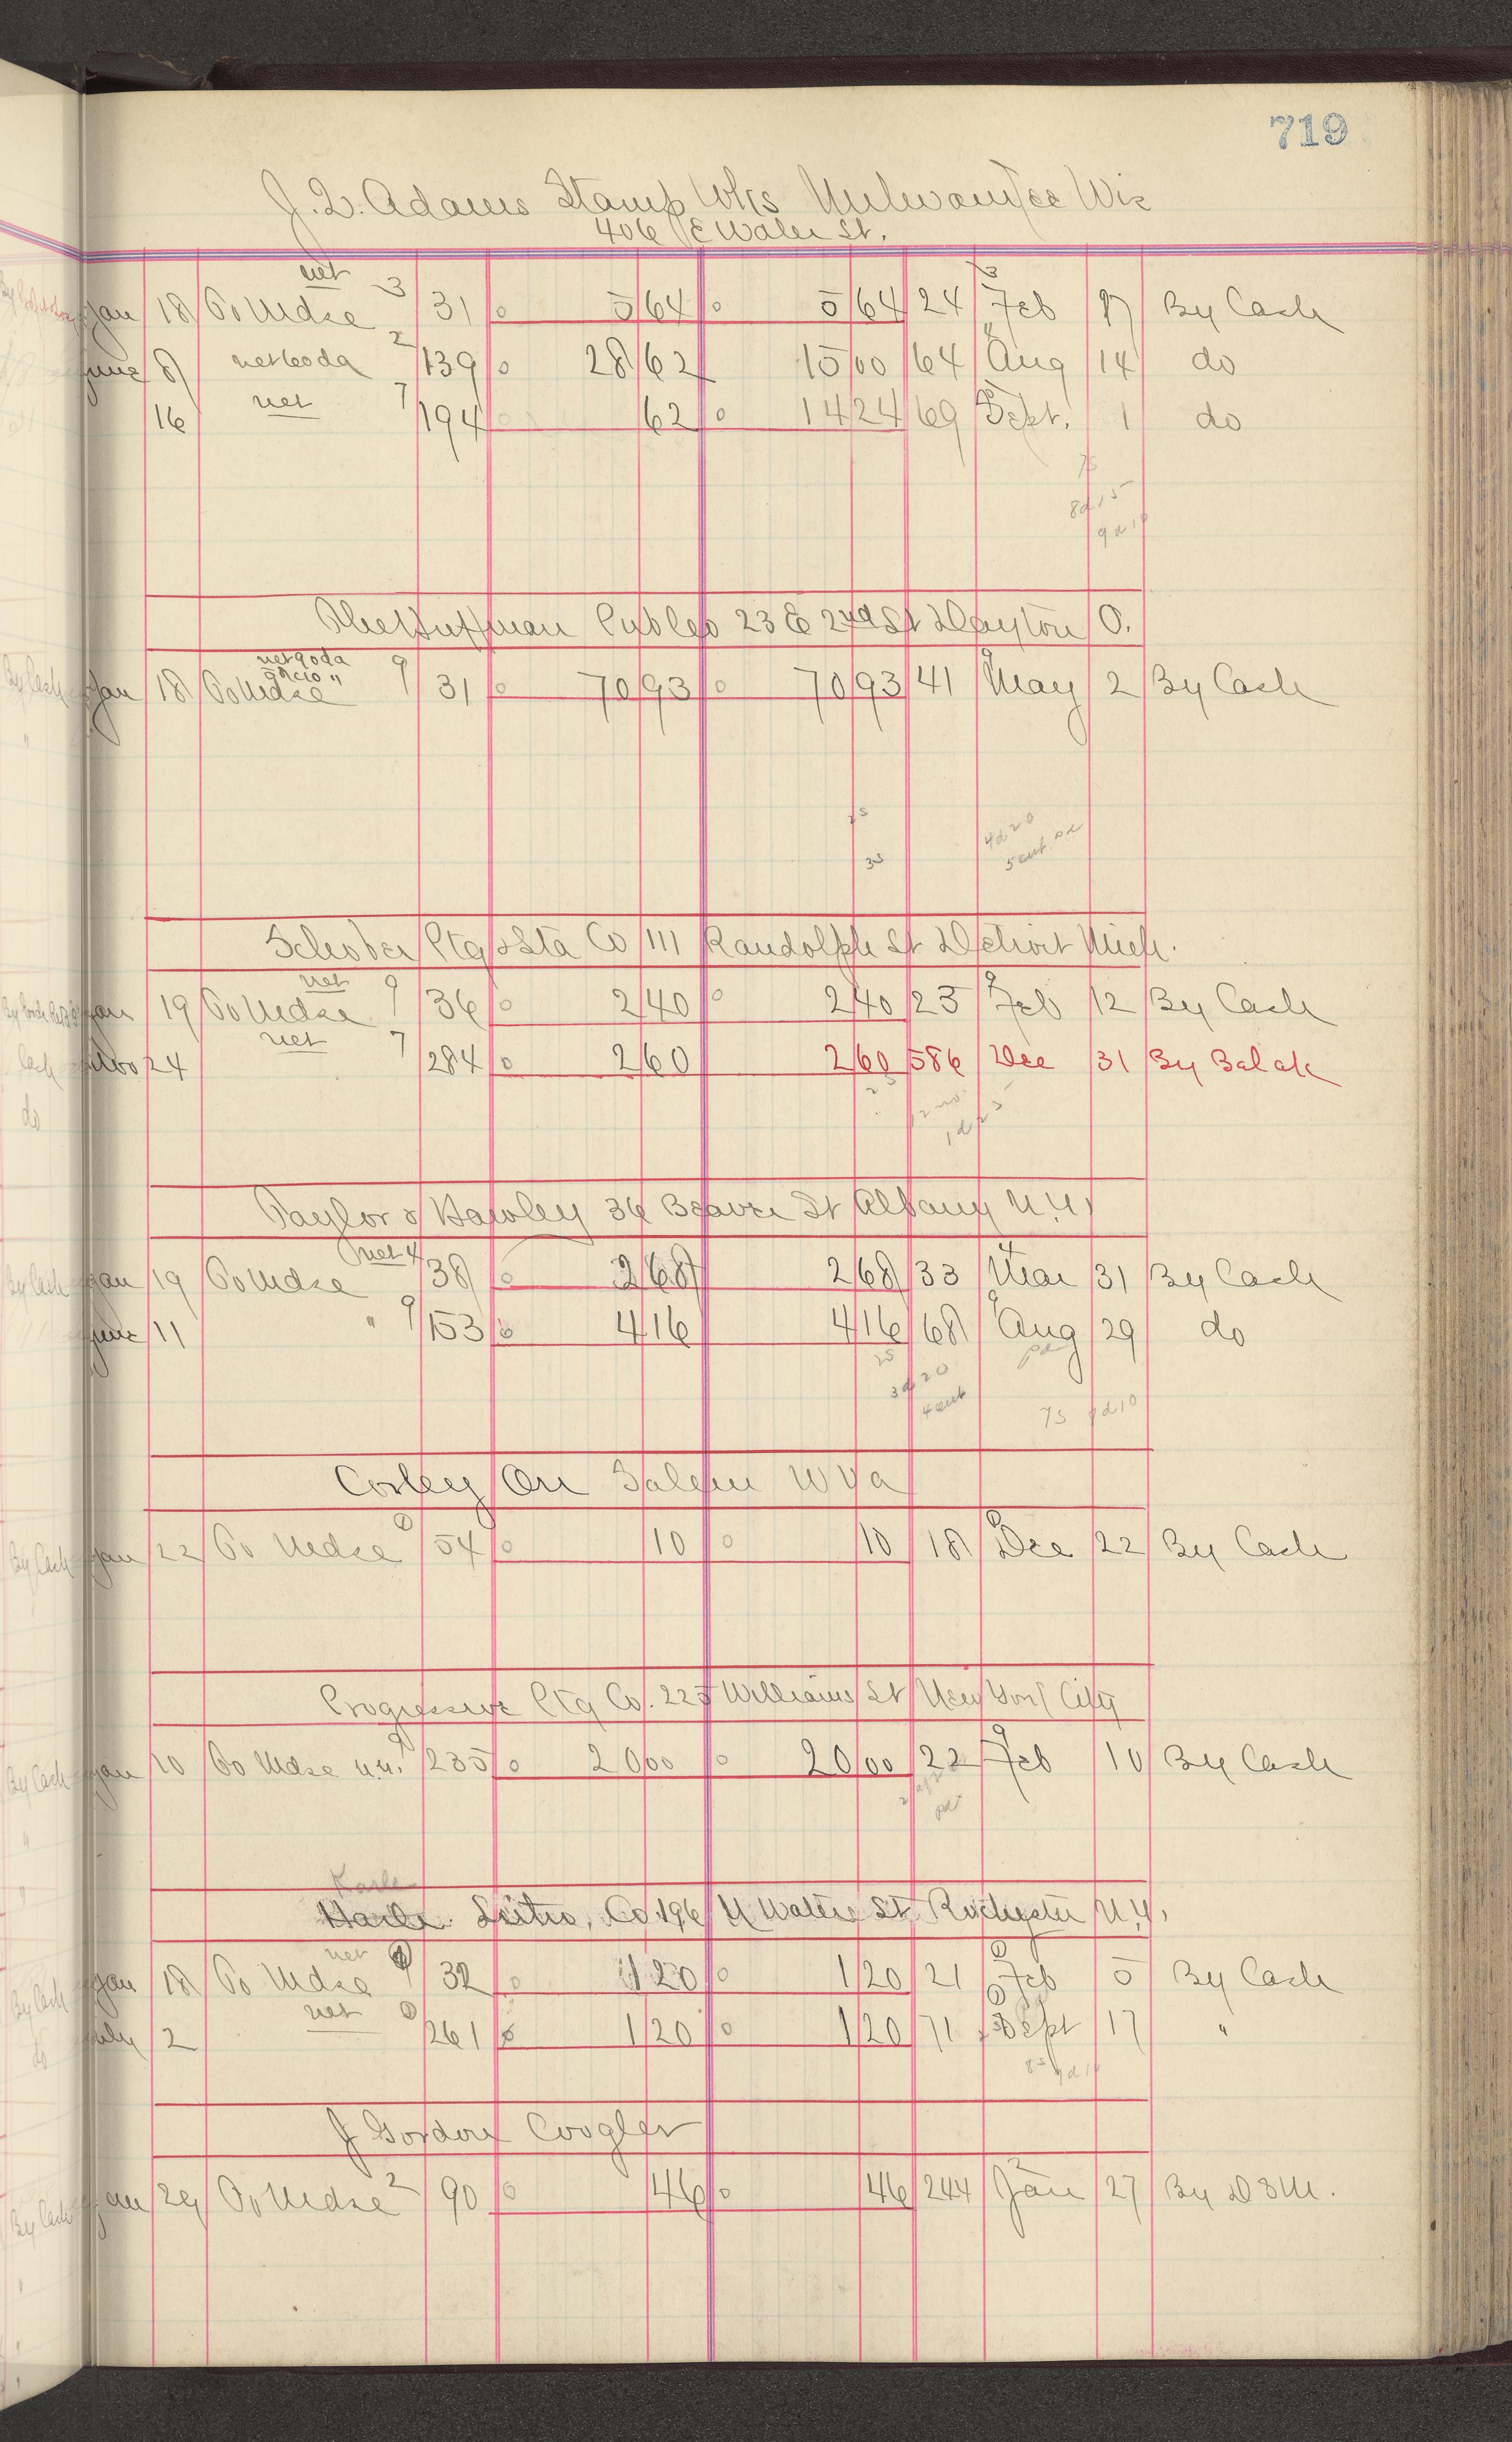 719
Adams Stamp Wks Milwaukee Wis
406 E Water St.
net
Jan 18 To Mdse 3 31 5 64 5 64 24 Feb By Cash
June 8 net 60 da 2 139 28 62 15 00 64 Aug 14 do
16 net 7 194 62 14 24 69 Sept. 1 do
7s
8d15
The Huffman 23 E 2nd St Dayton O.
net 90 da
Jan 18 To Mdse 9 31 70 93 70 93 41 May 2 By Cash
4d20
Schober Ptg & Sta Co 111 Randolph St Detroit Mich.
net
Jan 19 To Mdse 9 36 2 40 2 40 23 Feb 12 By Cash
Nov 24 net 7 284 2 60 2 60 586 Dec 31 By Bal
Taylor & Hawley 36 Beaver St Albany N.Y.
net 4
Jan 19 To Mdse 38 2 68 2 68 33 Mar 31 By Cash
June 11 " 9 153 4 16 4 16 68 Aug 29 do
3d20
7s 9d10
Corley Orr Salem W Va
Jan 22 To Mdse 54 10 10 18 Dec 22 By Cash
Progressive Ptg Co. 225 Williams St New York City
Jan 10 To Mdse 235 20 00 20 00 22 Feb 10 By Cash
Karle
Karle Litho. Co 196 N Water St Rochester N.Y.
net
Jan 18 To Mdse 32 1 20 1 20 21 Feb 5 By Cash
July 2 net 261 1 20 1 20 71 Sept 17 "
J Gordon Coogler
Jan 29 To Mdse 2 90 46 46 244 Jan 27 By